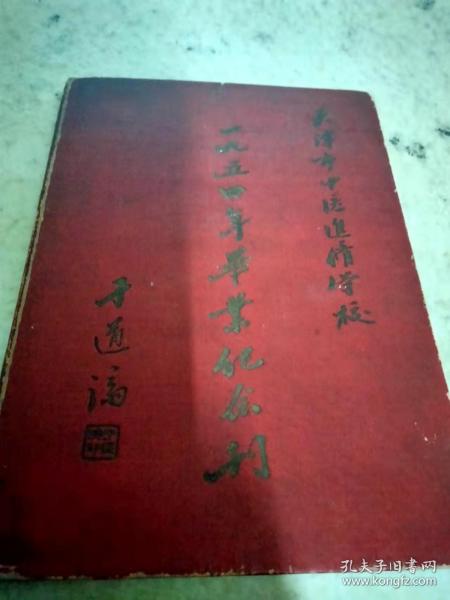 天津市中医进修学校
一九五四年毕業纪念刊
于道济
孔夫子旧书网
www.kongfz.com